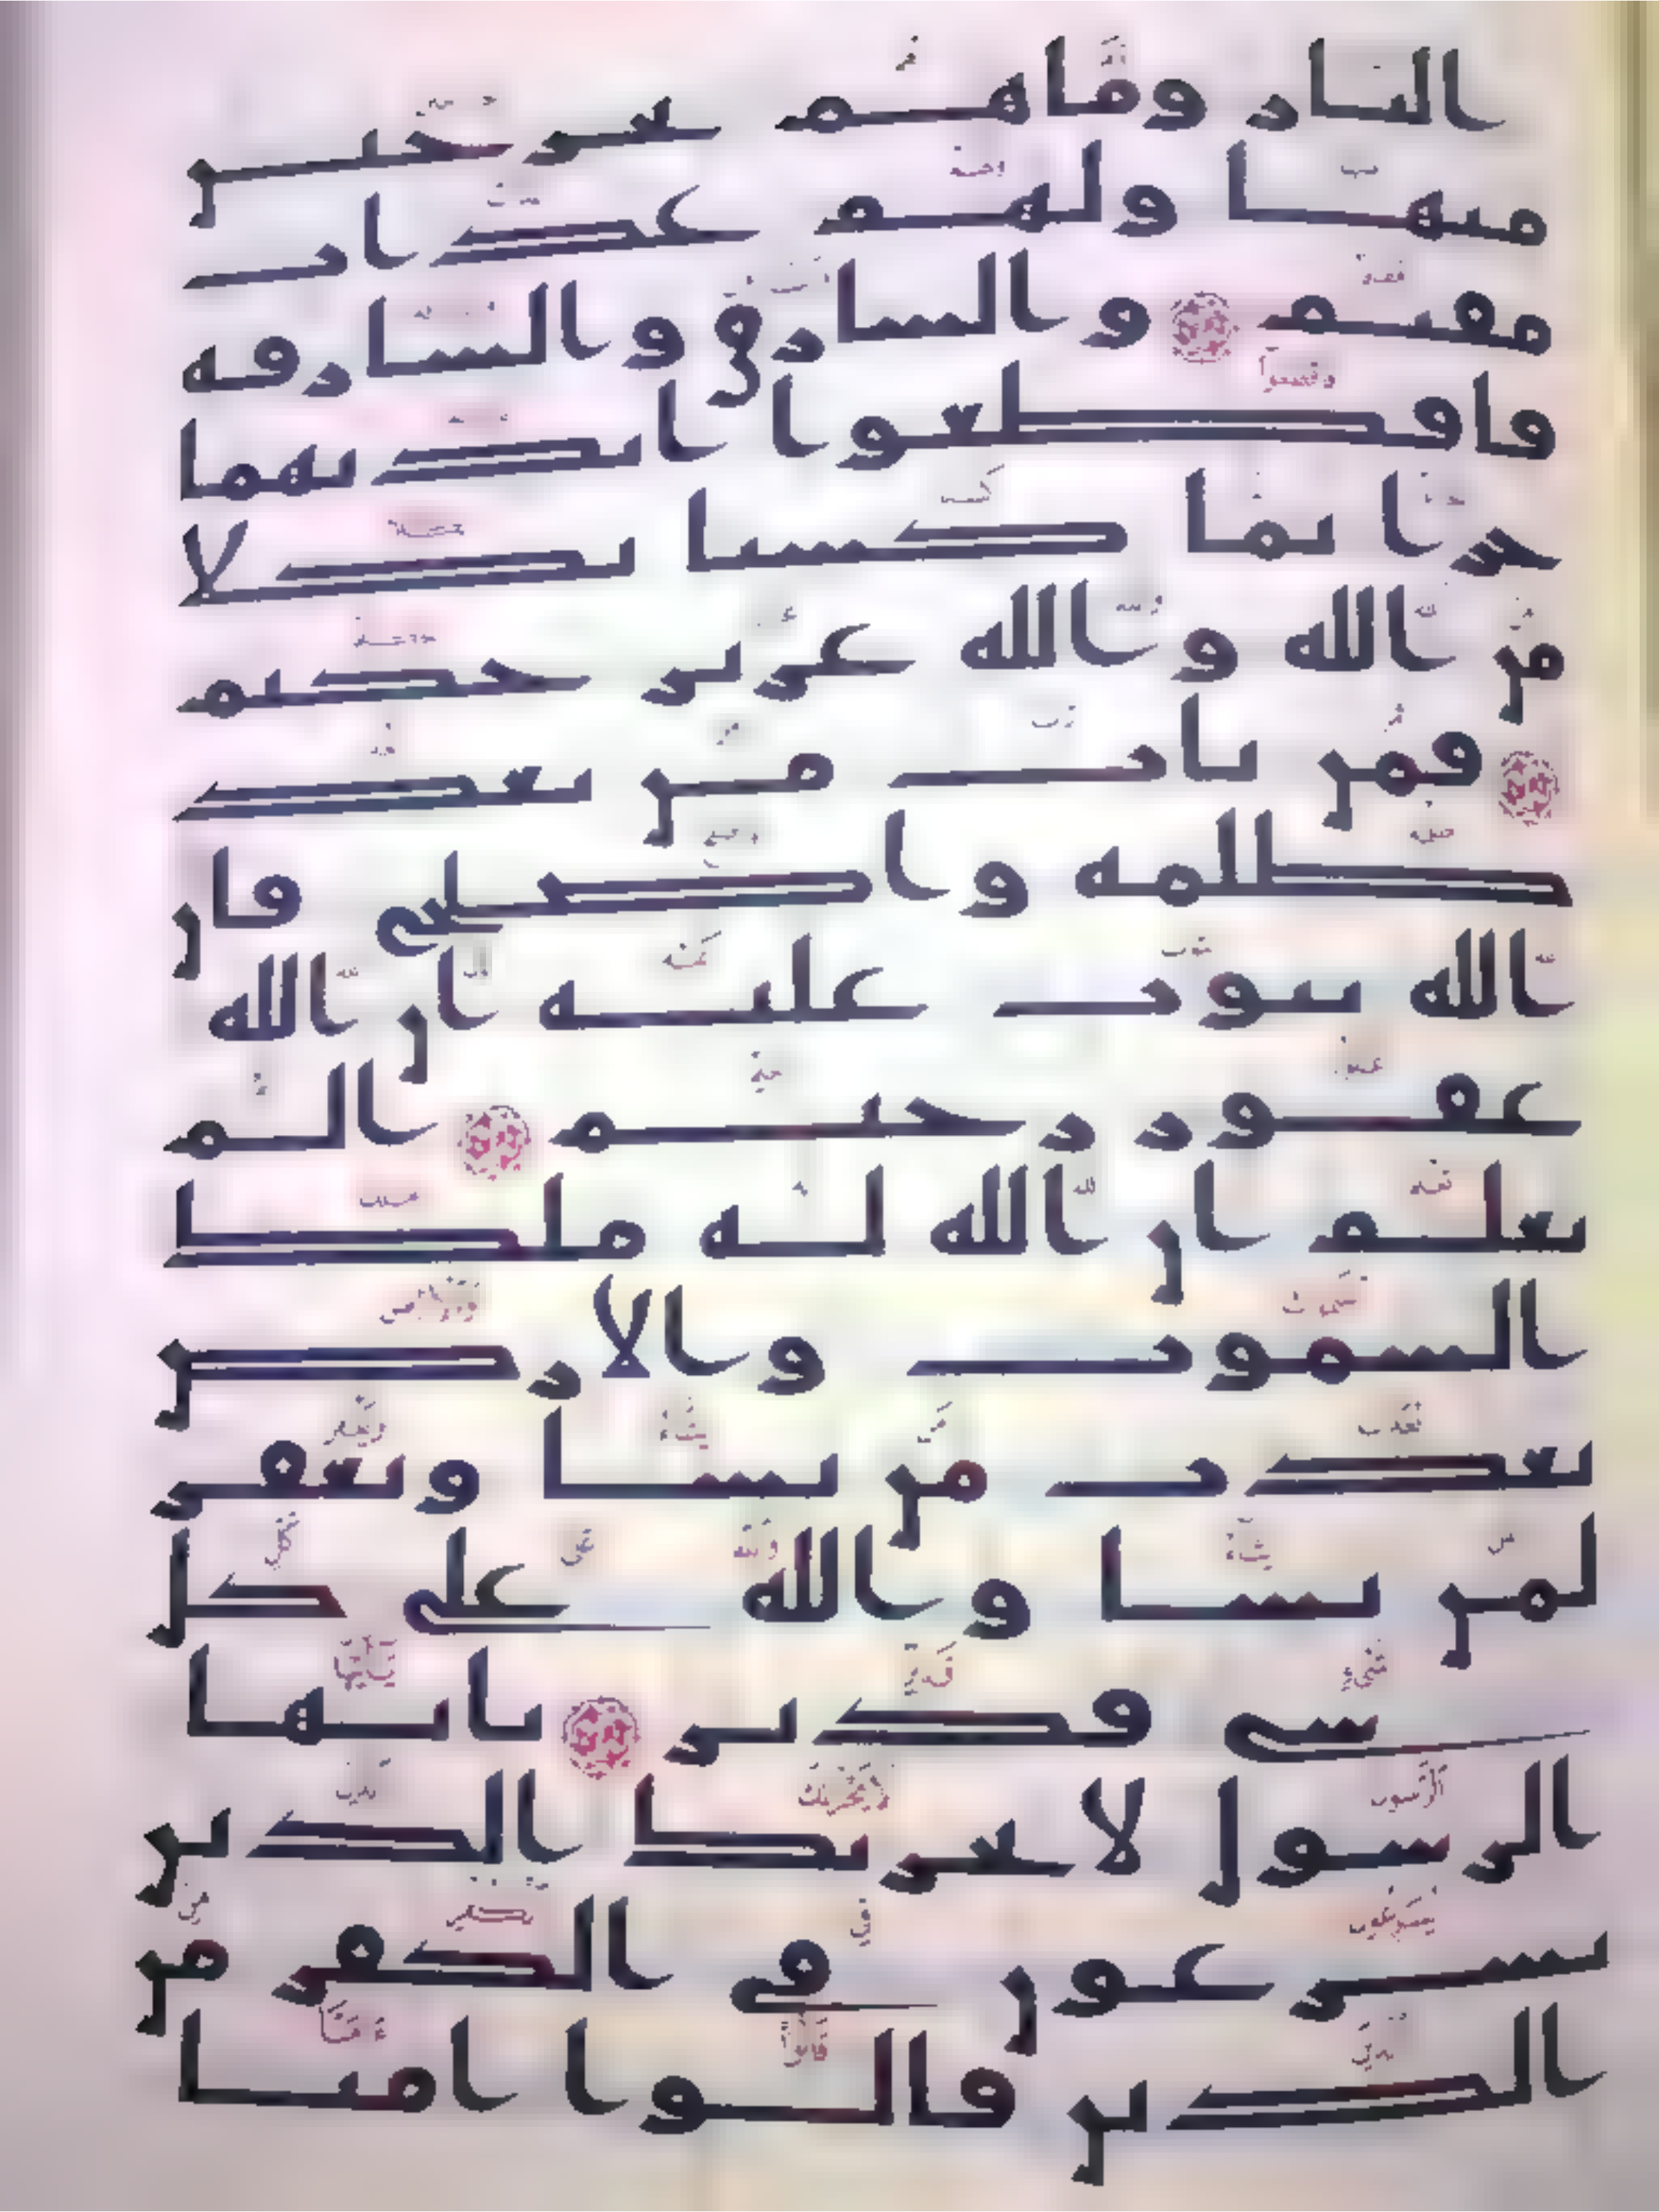 النار وما هم بخرجين
منها ولهم عذاب
مقيم والسارق والسارقة
فاقطعوا ايديهما
جزا بما كسبا نكلا
من الله والله عزيز حكيم
فمن تاب من بعد
ظلمه واصلح فان
الله يتوب عليه ان الله
غفور رحيم الم
تعلم ان الله له ملك
السموت والارض
يعذب من يشا ويغفر
لمن يشا والله على كل
شي قدير يايها
الرسول لا يحزنك الذين
يسرعون في الكفر من
الذين قالوا امنا